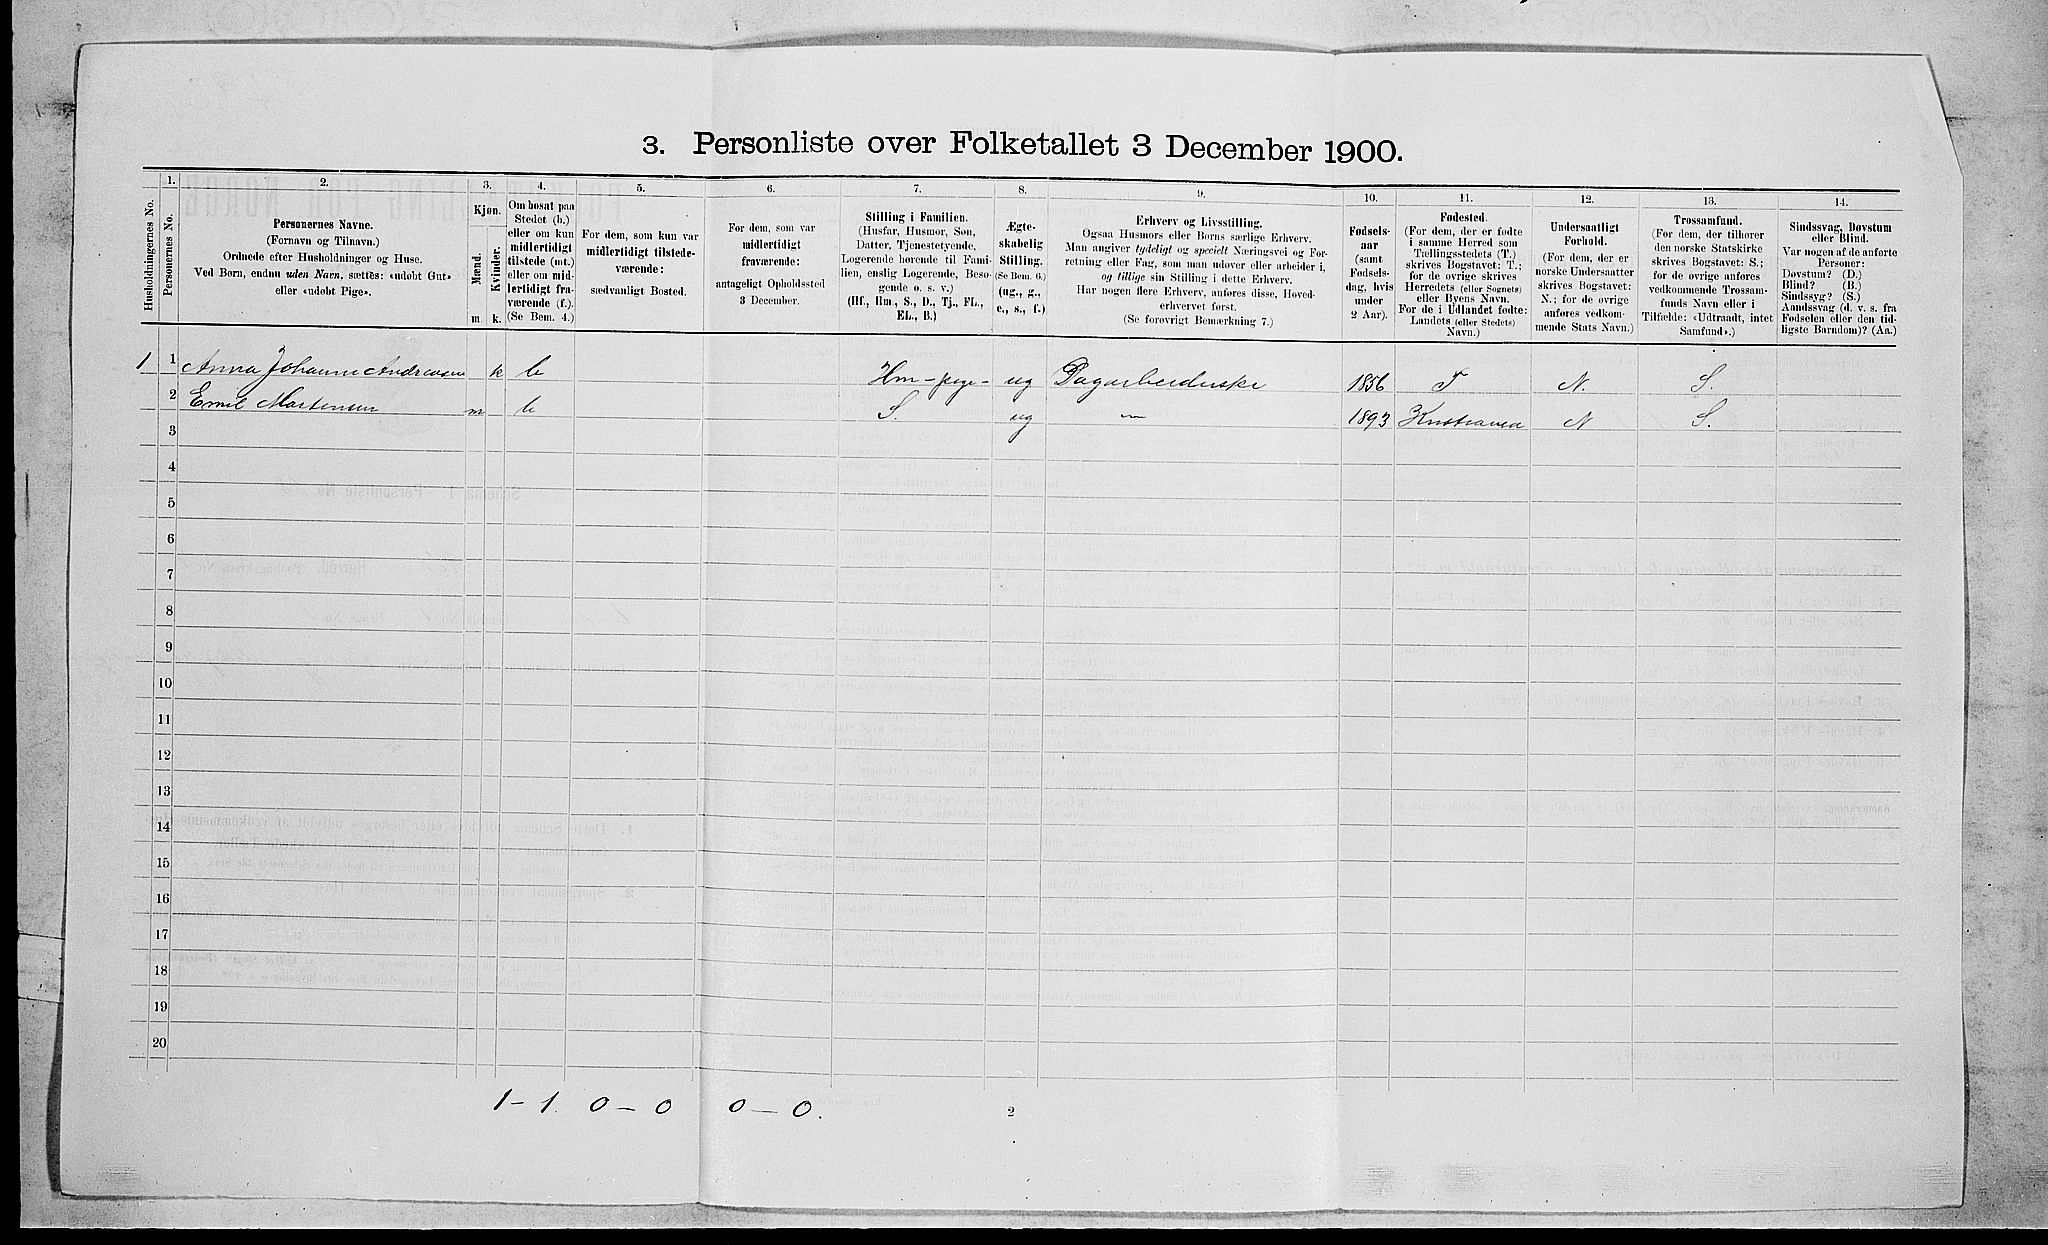 3. Personliste over Folketallet 3 December 1900.
1. 2. 3. 4. 5. 6. 7. 8. 9. 10. 11. 12. 13. 14.
Husholdningernes No.
Personernes No.
Personernes Navne.
(Fornavn og Tilnavn.)
Ordnede efter Husholdninger og Huse.
Ved Børn, endnu uden Navn, sættes: «udøbt Gut»
eller «udøbt Pige».
Kjøn.
Mænd.
Kvinder.
m. k.
Om bosat paa
Stedet (b.)
eller om kun
midlertidigt
tilstede (mt.)
eller om mid-
lertidigt fra-
værende (f.).
(Se Bem. 4.)
For dem, som kun var
midlertidigt tilstede-
værende:
sædvanligt Bosted.
For dem, som var
midlertidigt
fraværende:
antageligt Opholdssted
3 December.
Stilling i Familien.
(Husfar, Husmor, Søn,
Datter, Tjenestetyende,
Logerende hørende til Fami-
lien, enslig Logerende, Besø-
gende o. s. v.)
(Hf., Hm., S., D., Tj., FL.,
EL., B.)
Ægte-
skabelig
Stilling.
(Se Bem. 6.)
(ug., g.,
e., s., f.)
Erhverv og Livsstilling.
Ogsaa Husmors eller Børns særlige Erhverv.
Man angiver tydeligt og specielt Næringsvei og For-
retning eller Fag, som man udøver eller arbeider i,
og tillige sin Stilling i dette Erhverv.
Har nogen flere Erhverv, anføres disse, Hoved-
erhvervet først.
(Se forøvrigt Bemærkning 7.)
Fødsels-
aar
(samt
Fødsels-
dag, hvis
under
2 Aar).
Fødested.
(For dem, der er fødte
i samme Herred som
Tællingsstedets (T.)
skrives Bogstavet: T.;
for de øvrige skrives
Herredets (eller Sognets)
eller Byens Navn.
For de i Udlandet fødte:
Landets (eller Stedets)
Navn.)
Undersaatligt
Forhold.
(For dem, der er
norske Undersaatter
skrives Bogstavet:
N.; for de øvrige
anføres vedkom-
mende Stats Navn.)
Trossamfund.
(For dem, der tilhører
den norske Statskirke
skrives Bogstavet: S.;
for de øvrige anføres
vedkommende Trossam-
funds Navn eller i
Tilfælde: «Udtraadt, intet
Samfund».)
Sindssvag, Døvstum
eller Blind.
Var nogen af de anførte
Personer:
Døvstum? (D.)
Blind? (B.)
Sindssyg? (S.)
Aandssvag (d. v. s. fra
Fødselen eller den tid-
ligste Barndom)? (Aa.)
1 1 Anna Johanne Andreasen k b Hm-pige- ug Dagarbeiderske 1856 T N. S.
2 Emil Martensen m b S. ug — 1893 Kristiania N S.
3
4
5
6
7
8
9
10
11
12
13
14
15
16
17
18
19
20
1-1. 0-0 0-0.
2